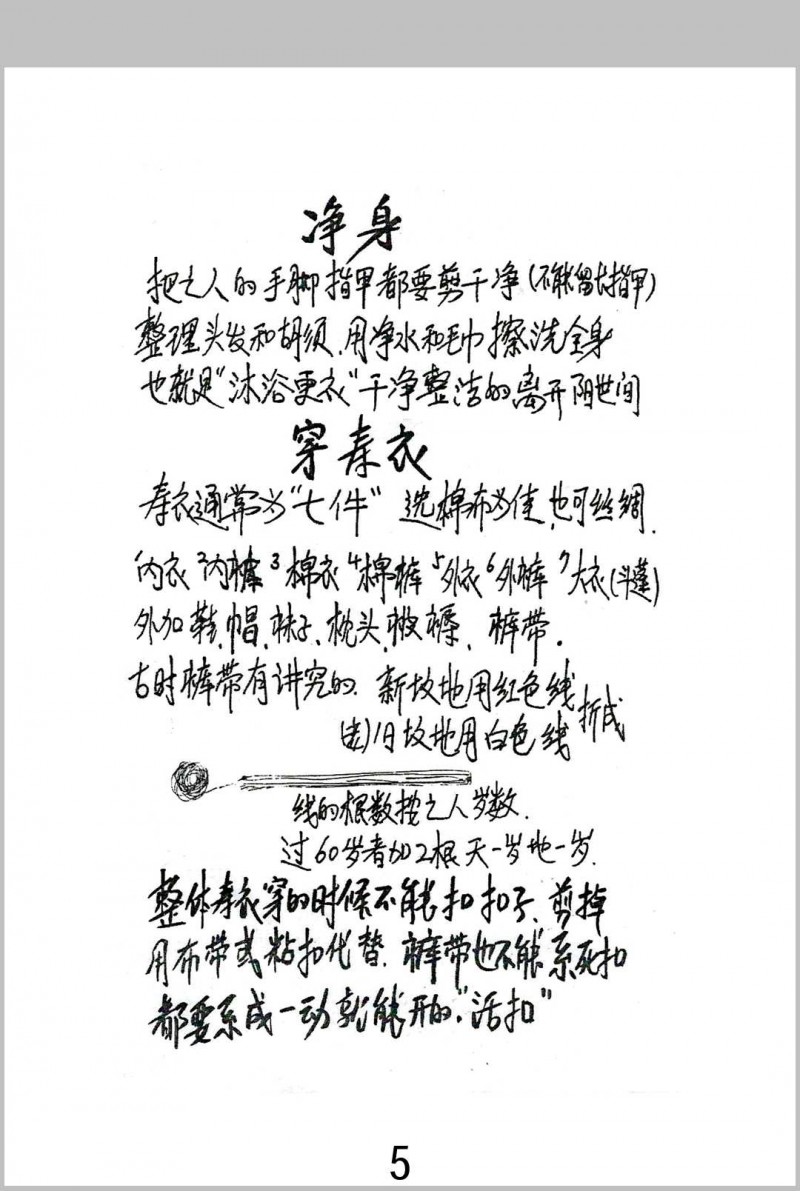 净身
把亡人的手脚指甲都要剪干净(不能留长指甲)
整理头发和胡须.用净水和毛巾擦洗全身
也就是"沐浴更衣"干净整洁的离开阳世间
穿寿衣
寿衣通常为"七件" 选棉布为佳,也可丝绸.
内衣 2内裤 3棉衣 4棉裤 5外衣 6外裤 7大衣(斗篷)
外加鞋、帽、袜子、枕头、被褥、裤带.
古时裤带有讲究的. 新坟地用红色线
旧坟地用白色线 折成
线的根数按亡人岁数.
过60岁者加2根 天一岁地一岁.
整体寿衣穿的时候不能扣扣子、剪掉
用布带或粘扣代替.裤带也不能系死扣
都要系成一动就能开的."活扣"
5